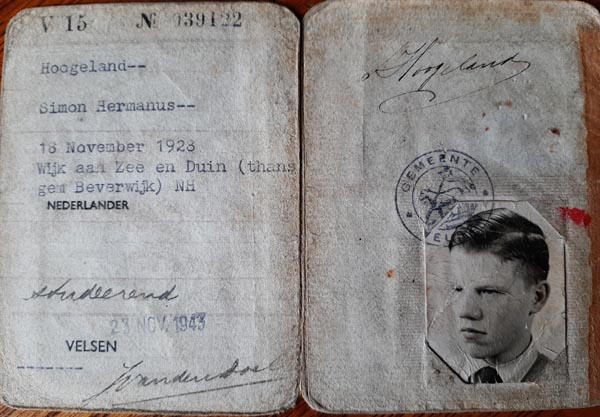 V 15 № 039122
Hoogeland--
Simon Hermanus--
18 November 1923
Wijk aan Zee en Duin (thans
gem Beverwijk) NH
NEDERLANDER
studeerend
23 NOV. 1943
VELSEN
S Hoogeland
GEMEENTE